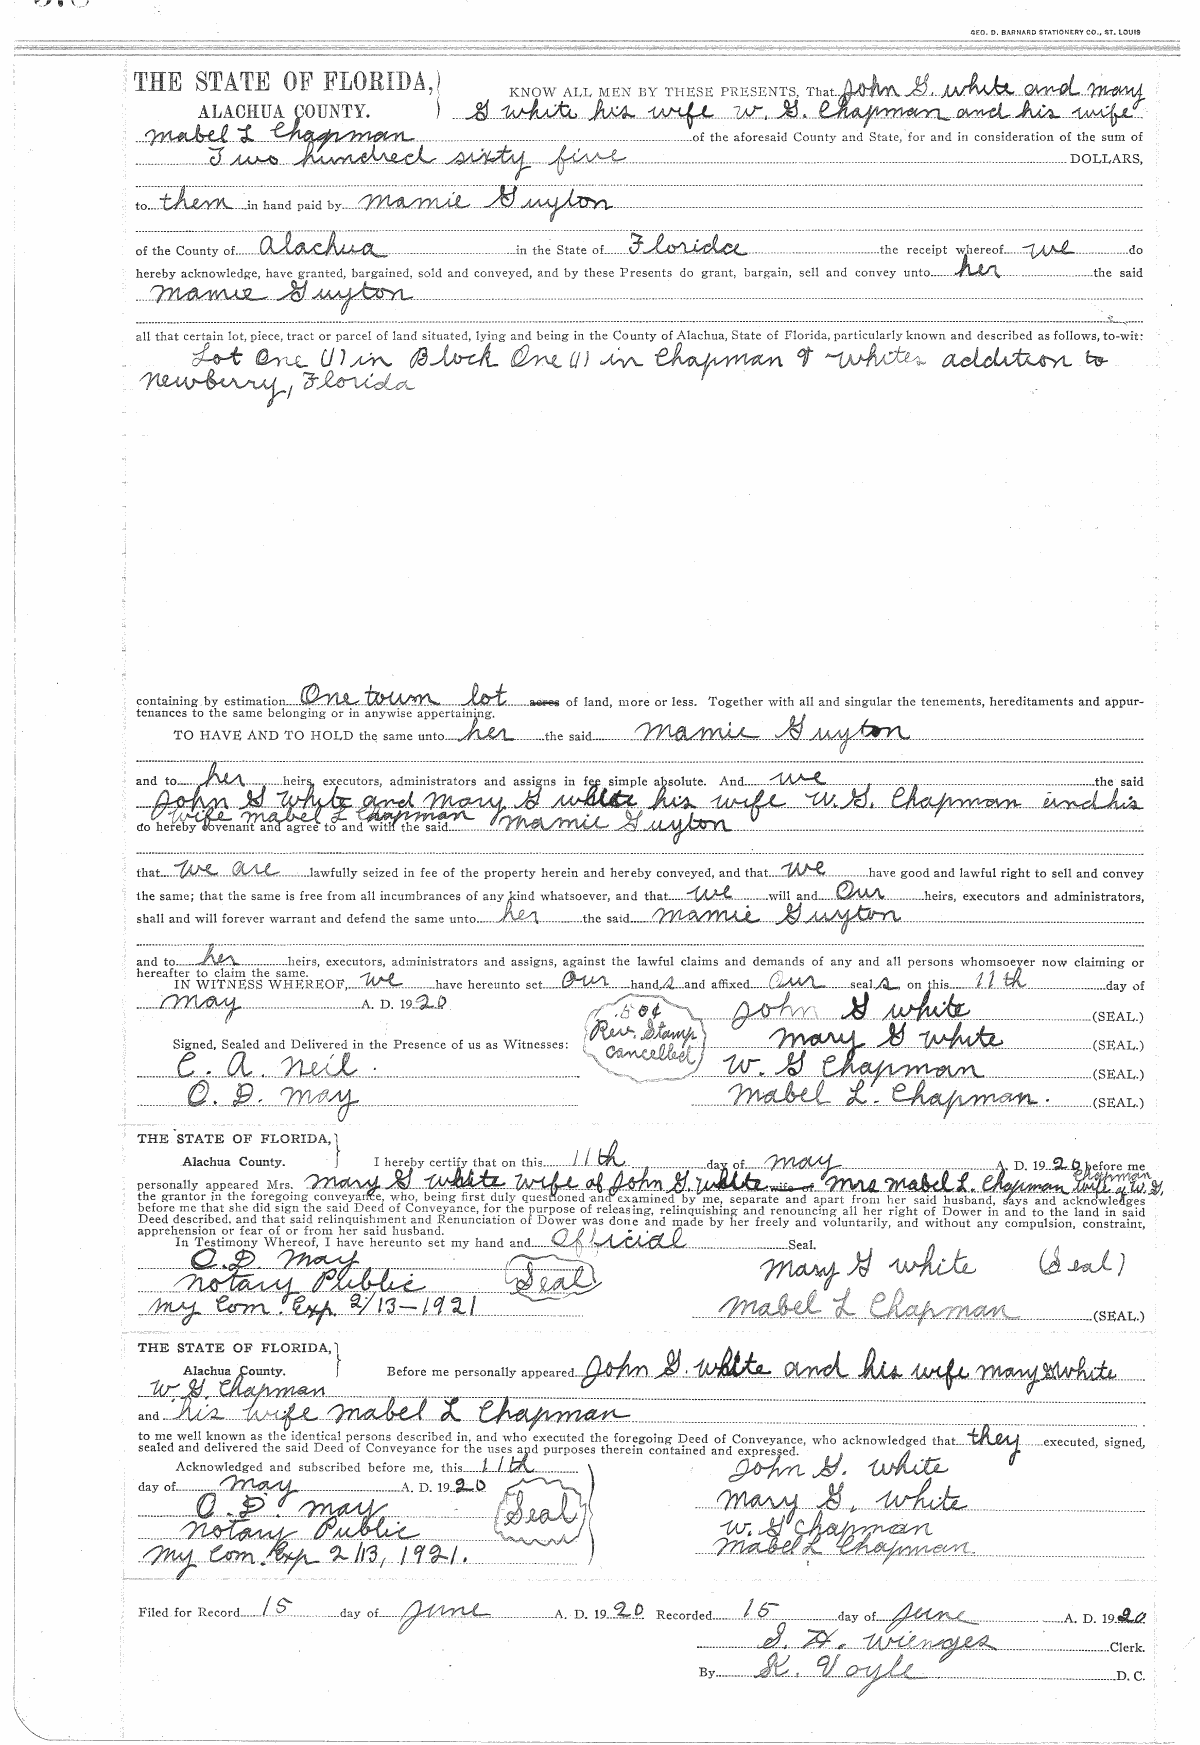 GEO. D. BARNARD STATIONERY CO., ST. LOUIS
THE STATE OF FLORIDA,) KNOW ALL MEN BY THESE PRESENTS, That John G. White and Mary
ALACHUA COUNTY. ) G White his wife W. G. Chapman and his wife
Mabel L Chapman of the aforesaid County and State, for and in consideration of the sum of
Two hundred sixty five DOLLARS,
to them in hand paid by Mamie Guyton
of the County of Alachua in the State of Florida the receipt whereof we do
hereby acknowledge, have granted, bargained, sold and conveyed, and by these Presents do grant, bargain, sell and convey unto her the said
Mamie Guyton
all that certain lot, piece, tract or parcel of land situated, lying and being in the County of Alachua, State of Florida, particularly known and described as follows, to-wit:
Lot One (1) in Block One (1) in Chapman & Whites addition to
Newberry, Florida
containing by estimation One town lot acres of land, more or less. Together with all and singular the tenements, hereditaments and appur-
tenances to the same belonging or in anywise appertaining.
TO HAVE AND TO HOLD the same unto her the said Mamie Guyton
and to her heirs, executors, administrators and assigns in fee simple absolute. And we the said
John G White and Mary G White his wife W. G. Chapman and his
wife Mabel L Chapman
do hereby covenant and agree to and with the said Mamie Guyton
that we are lawfully seized in fee of the property herein and hereby conveyed, and that we have good and lawful right to sell and convey
the same; that the same is free from all incumbrances of any kind whatsoever, and that we will and Our heirs, executors and administrators,
shall and will forever warrant and defend the same unto her the said Mamie Guyton
and to her heirs, executors, administrators and assigns, against the lawful claims and demands of any and all persons whomsoever now claiming or
hereafter to claim the same.
IN WITNESS WHEREOF, we have hereunto set Our hands and affixed Our seals on this 11th day of
May A. D. 1920
.50¢ Rev. Stamp Cancelled
John G White (SEAL.)
Mary G White (SEAL.)
Signed, Sealed and Delivered in the Presence of us as Witnesses:
C. A. Neil. W. G Chapman (SEAL.)
O. D. May Mabel L. Chapman. (SEAL.)
THE STATE OF FLORIDA,}
Alachua County. I hereby certify that on this 11th day of May A. D. 1920 before me
personally appeared Mrs. Mary G White wife of John G. White Mrs Mabel L. Chapman wife of W. G. Chapman
the grantor in the foregoing conveyance, who, being first duly questioned and examined by me, separate and apart from her said husband, says and acknowledges
before me that she did sign the said Deed of Conveyance, for the purpose of releasing, relinquishing and renouncing all her right of Dower in and to the land in said
Deed described, and that said relinquishment and Renunciation of Dower was done and made by her freely and voluntarily, and without any compulsion, constraint,
apprehension or fear of or from her said husband.
In Testimony Whereof, I have hereunto set my hand and Official Seal.
O. D. May Mary G White (Seal)
Notary Public Seal
My Com. Exp. 2/13-1921 Mabel L Chapman (SEAL.)
THE STATE OF FLORIDA,}
Alachua County. Before me personally appeared John G. White and his wife Mary G White
W. G. Chapman
and his wife Mabel L Chapman
to me well known as the identical persons described in, and who executed the foregoing Deed of Conveyance, who acknowledged that they executed, signed,
sealed and delivered the said Deed of Conveyance for the uses and purposes therein contained and expressed.
Acknowledged and subscribed before me, this 11th
day of May A. D. 1920
John G. White
O. D. May Seal Mary G. White
Notary Public W. G Chapman
My Com. Exp 2/13, 1921. Mabel L Chapman.
Filed for Record 15 day of June A. D. 1920 Recorded 15 day of June A. D. 1920
S. H. Wienges Clerk.
By K. Voyle D. C.